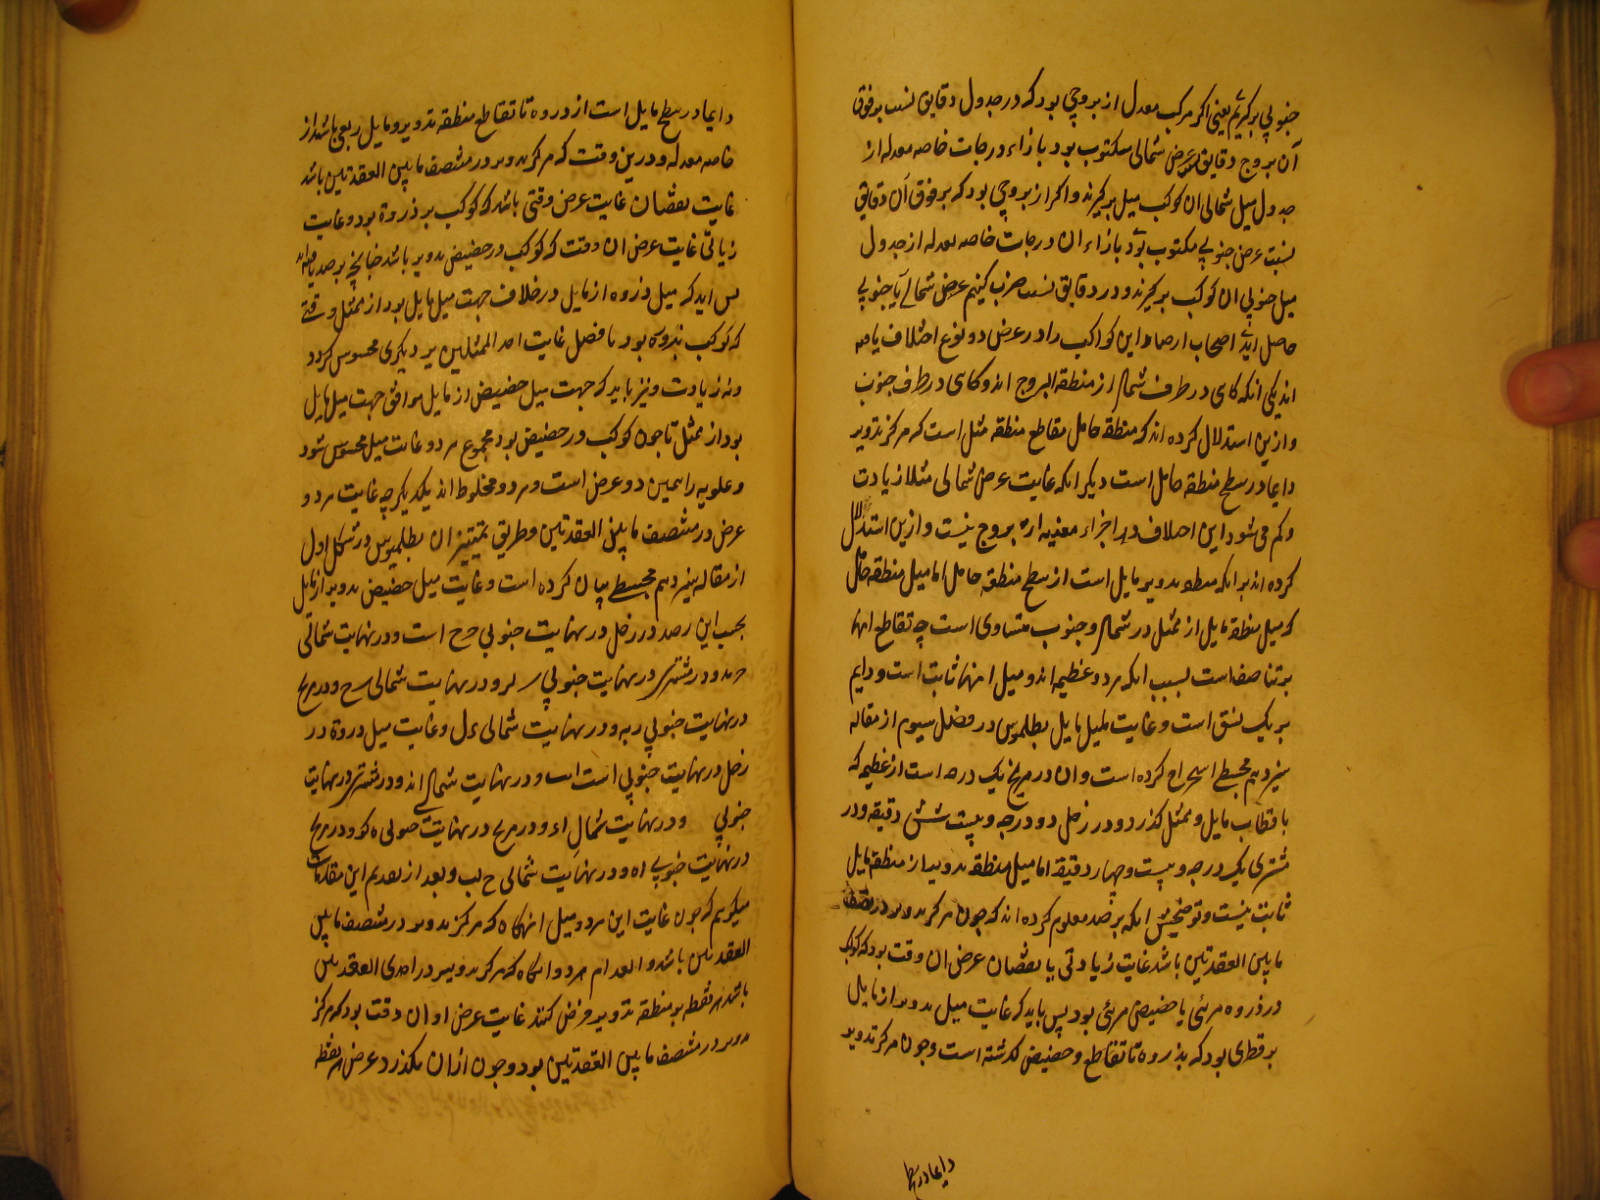 جنوبی برگیریم یعنی اگر مرکب معدل از بروجی بود که در جدول دقایق نسبت بر فوق
آن بروج دقایق عرض شمالی مکتوب بود بازاء درجات خاصه معدله از
جدول میل شمالی ان کوکب میل برگیرند و اگر از بروجی بود که بر فوق آن دقایق
نسبت عرض جنوبی مکتوب بود بازاء ان درجات خاصه معدله از جدول
میل جنوبی ان کوکب برگیرند و در دقایق نسبت ضرب کنیم عرض شمالی یا جنوبی
حاصل آید اصحاب ارصاد این کواکب را در عرض دو نوع اختلاف یافته
اند یکی انکه کاهی در طرف شمال از منطقة البروج اند و کاهی در طرف جنوب
و ازین استدلال کرده اند که منطقه حامل مقاطع منطقه ممثل است که مرکز تدویر
دایما در سطح منطقه حامل است دیگر انکه غایت عرض شمالی مثلا زیادت
و کم می شود این اختلاف در اجزاء معینه از بروج نیست و ازین استدلال
کرده اند بر انکه منطقه تدویر مایل است از سطح منطقه حامل اما میل منطقه حامل
که میل منطقه مایل از ممثل در شمال و جنوب متساوی است چه تقاطع انها
بر تناصف است بسبب انکه هر دو عظیمه اند و میل انها ثابت است و دایم
بر یک نسق است و غایت میل مایل بطلمیوس در فصل سیوم از مقاله
سیزدهم مجسطی استخراج کرده است و ان در مریخ یک درجه است از عظیمه که
با قطاب مایل و ممثل گذرد و در زحل دو درجه و بیست شش دقیقه و در
مشتری یک درجه و بیست و چهار دقیقه اما میل منطقه تدویر از منطقه مایل
ثابت نیست و توضیحش انکه برصد معلوم کرده اند که چون مرکز تدویر در منتصف
مابین العقدتین باشد غایت زیادتی یا نقصان عرض ان وقت بود که کوکب
در ذروه مرئی یا حضیض مرئی بود پس باید که غایت میل تدویر از مایل
بر قطری بود که بذروه تا تقاطع و حضیض گذشته است و چون مرکز تدویر
دایما در سطح
دایما در سطح مایل است از ذروه تا تقاطع منطقه تدویر و مایل ربعی باشد از
خاصه معدله و درین وقت که مرکز تدویر در منتصف مابین العقدتین باشد
غایت نقصان غایت عرض وقتی باشد که کوکب بر ذروه بود و غایت
زیاتی غایت عرض ان وقت که کوکب در حضیض تدویر باشد چنانچه برصد یافته اند
پس اید که میل ذروه از مایل در خلاف جهت میل مایل بود از ممثل وقتی
که کوکب بذروه بود تا فضل غایت احد المیلین بر دیگری محسوس گردد
ونه زیادت و نیز باید که جهت میل حضیض از مایل موافق جهت میل مایل
بود از ممثل تا چون کوکب در حضیض بود مجموع هر دو غایت میل محسوس شود
و علویه را همین دو عرض است و هر دو مخلوط اند بیکدیگر چه غایت هر دو
عرض در منتصف مابین العقدتین و طریق تمییز ان بطلمیوس در شکل اول
از مقاله سیزدهم مجسطی بیان کرده است و غایت میل حضیض تدویر از مایل
بحسب این رصد در زحل در نهایت جنوبی ح ح است و در نهایت شمالی
و در مشتری در نهایت جنوبی و در نهایت شمالی و در مریخ
در نهایت جنوبی و در نهایت شمالی و غایت میل ذروه در
زحل در نهایت جنوبی است و در نهایت شمالی و در مشتری در نهایت
جنوبی و در نهایت شمال و در مریخ در نهایت جنوبی و در مریخ
در نهایت جنوبی و در نهایت شمالی و بعد از تقدیم این مقدمات
میگویم که چون غایت این هر دو میل انگاه که مرکز تدویر در منتصف مابین
العقدتین باشد و انعدام هر دو انگاه که مرکز تدویر در احدی العقدتین
باشد هر نقطه بر منطقه تدویر فرض کنند غایت عرض او ان وقت بود که مرکز
تدویر در منتصف مابین العقدتین بود و چون ازان بگذرد عرض هر نقطه